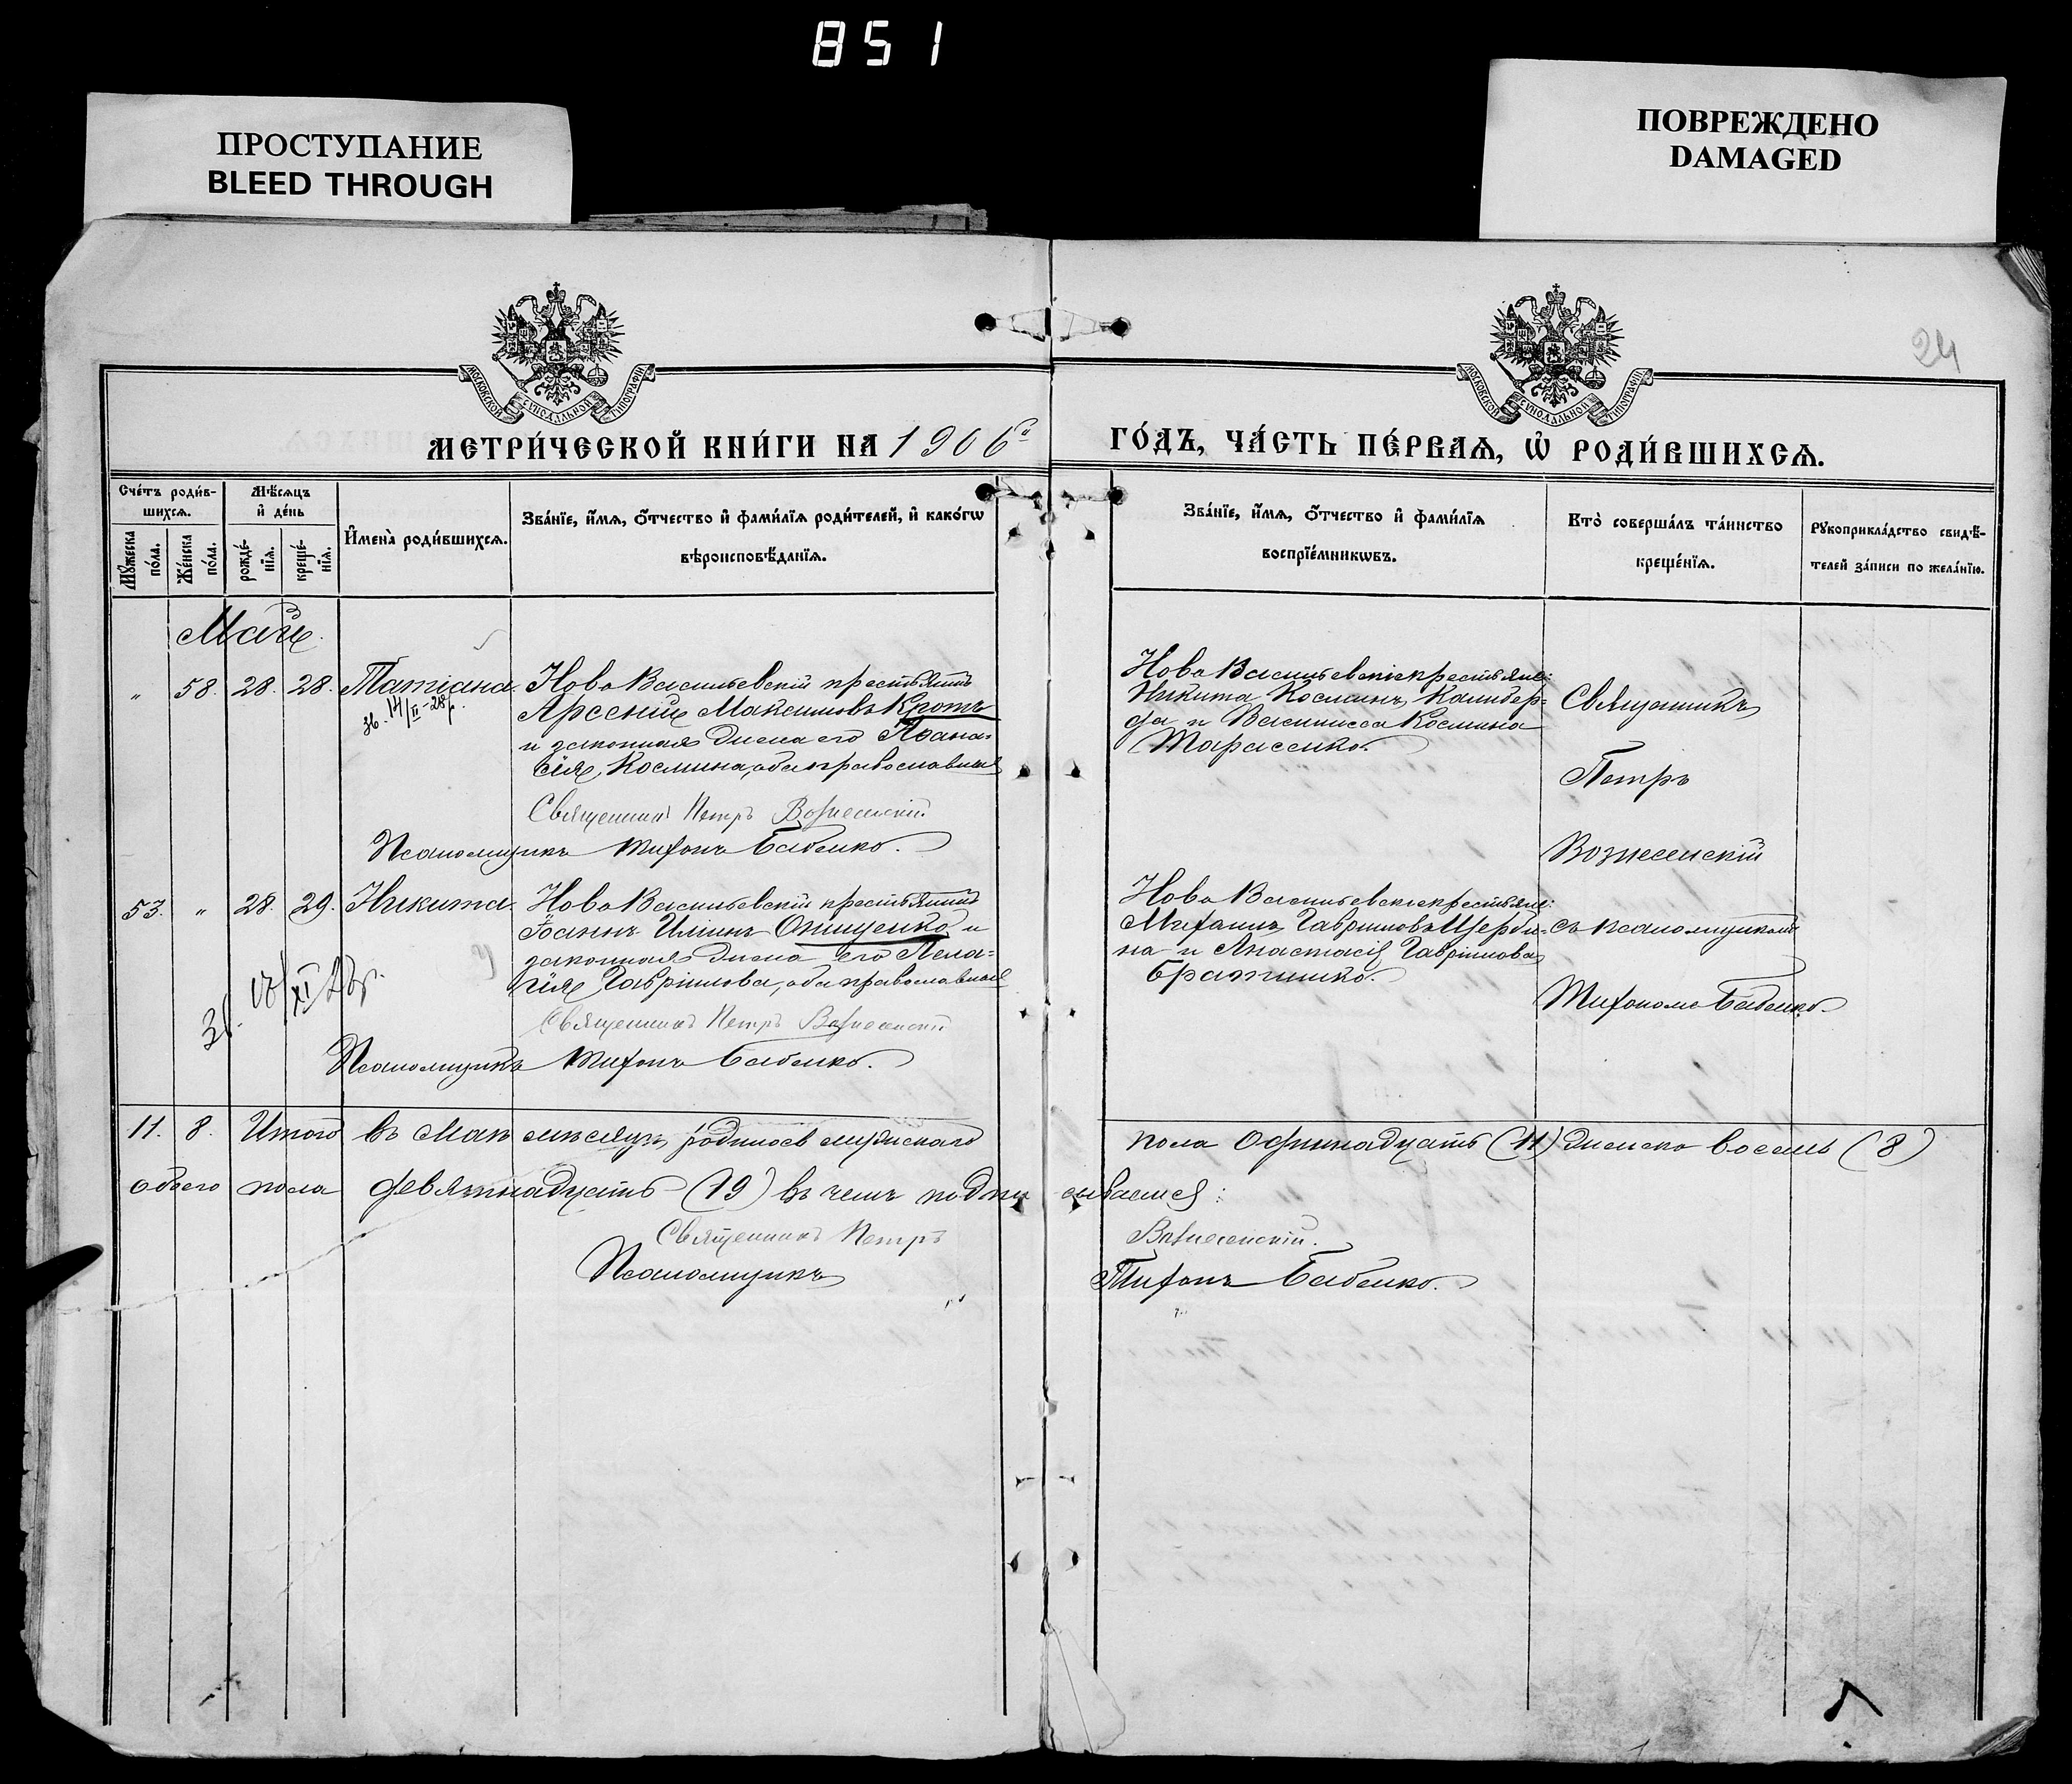 851
ПРОСТУПАНИЕ
BLEED THROUGH
ПОВРЕЖДЕНО
DAMAGED
24
МОСКОВСКОЙ СѴНОДАЛЬНОЙ ТИПОГРАФІИ
МОСКОВСКОЙ СѴНОДАЛЬНОЙ ТИПОГРАФІИ
МЕТРИ́ЧЕСКОЙ КНИ́ГИ НА 1906й
ГО́ДЪ, ЧА́СТЬ ПЕ́РВАѦ, Ѡ҆ РОДИ́ВШИХСѦ.
Сче́тъ роди́в-
шихсѧ.
Мужеска по́ла.
Же́нска по́ла.
Мѣ́сѧцъ
и҆ де́нь
рожде́-
нїѧ.
креще́-
нїѧ.
И҆мена̀ роди́вшихсѧ.
Зва́нїе, и҆́мѧ, ѻ҆́тчество и҆ фами́лїѧ роди́телей, и҆ како́гѡ
вѣроисповѣ́данїѧ.
Зва́нїе, и҆́мѧ, ѻ҆́тчество и҆ фами́лїѧ
воспрїе́мникѡвъ.
Кто̀ соверша́лъ та́инство
креще́нїѧ.
Рꙋкоприкла́дство свидѣ́-
телей за́писи по жела́нїю.
Май
" 58. 28. 28. Татіана.
зв. 14/II-28р.
Ново Васильевскій крестьянинъ
Арсеній Максимовъ Кротъ
и законная жена его Аѳана-
сія Космина, оба православные
Священникъ Петръ Вознесенскій
Псаломщикъ Тихонъ Бабенко.
Ново Васильевскіе крестьяне:
Никита Косминъ Калибер-
да и Васильисса Космина
Тарасенко.
Священникъ
Петръ
Вознесенскій
53. " 28. 29. Никита.
Ново Васильевскій крестьянинъ
Іоаннъ Ильинъ Онищенко и
законная жена его Пела-
гія Гавріилова, оба православные
Священникъ Петръ Вознесенскій
Псаломщикъ Тихонъ Бабенко.
Ново Васильевскіе крестьяне:
Михаилъ Гавриловъ Щерби-
на и Анастасія Гавріилова
Братишко.
съ псаломщикомъ
Тихономъ Бабенко.
11. 8. Итого въ Маѣ мѣсяцѣ родилось мужскаго
пола одиннадцать (11) женско восемь (8)
обоего пола девятнадцать (19) въ чемъ подпи
сываемся:
Священникъ Петръ
Вознесенскій.
Псаломщикъ
Тихонъ Бабенко.